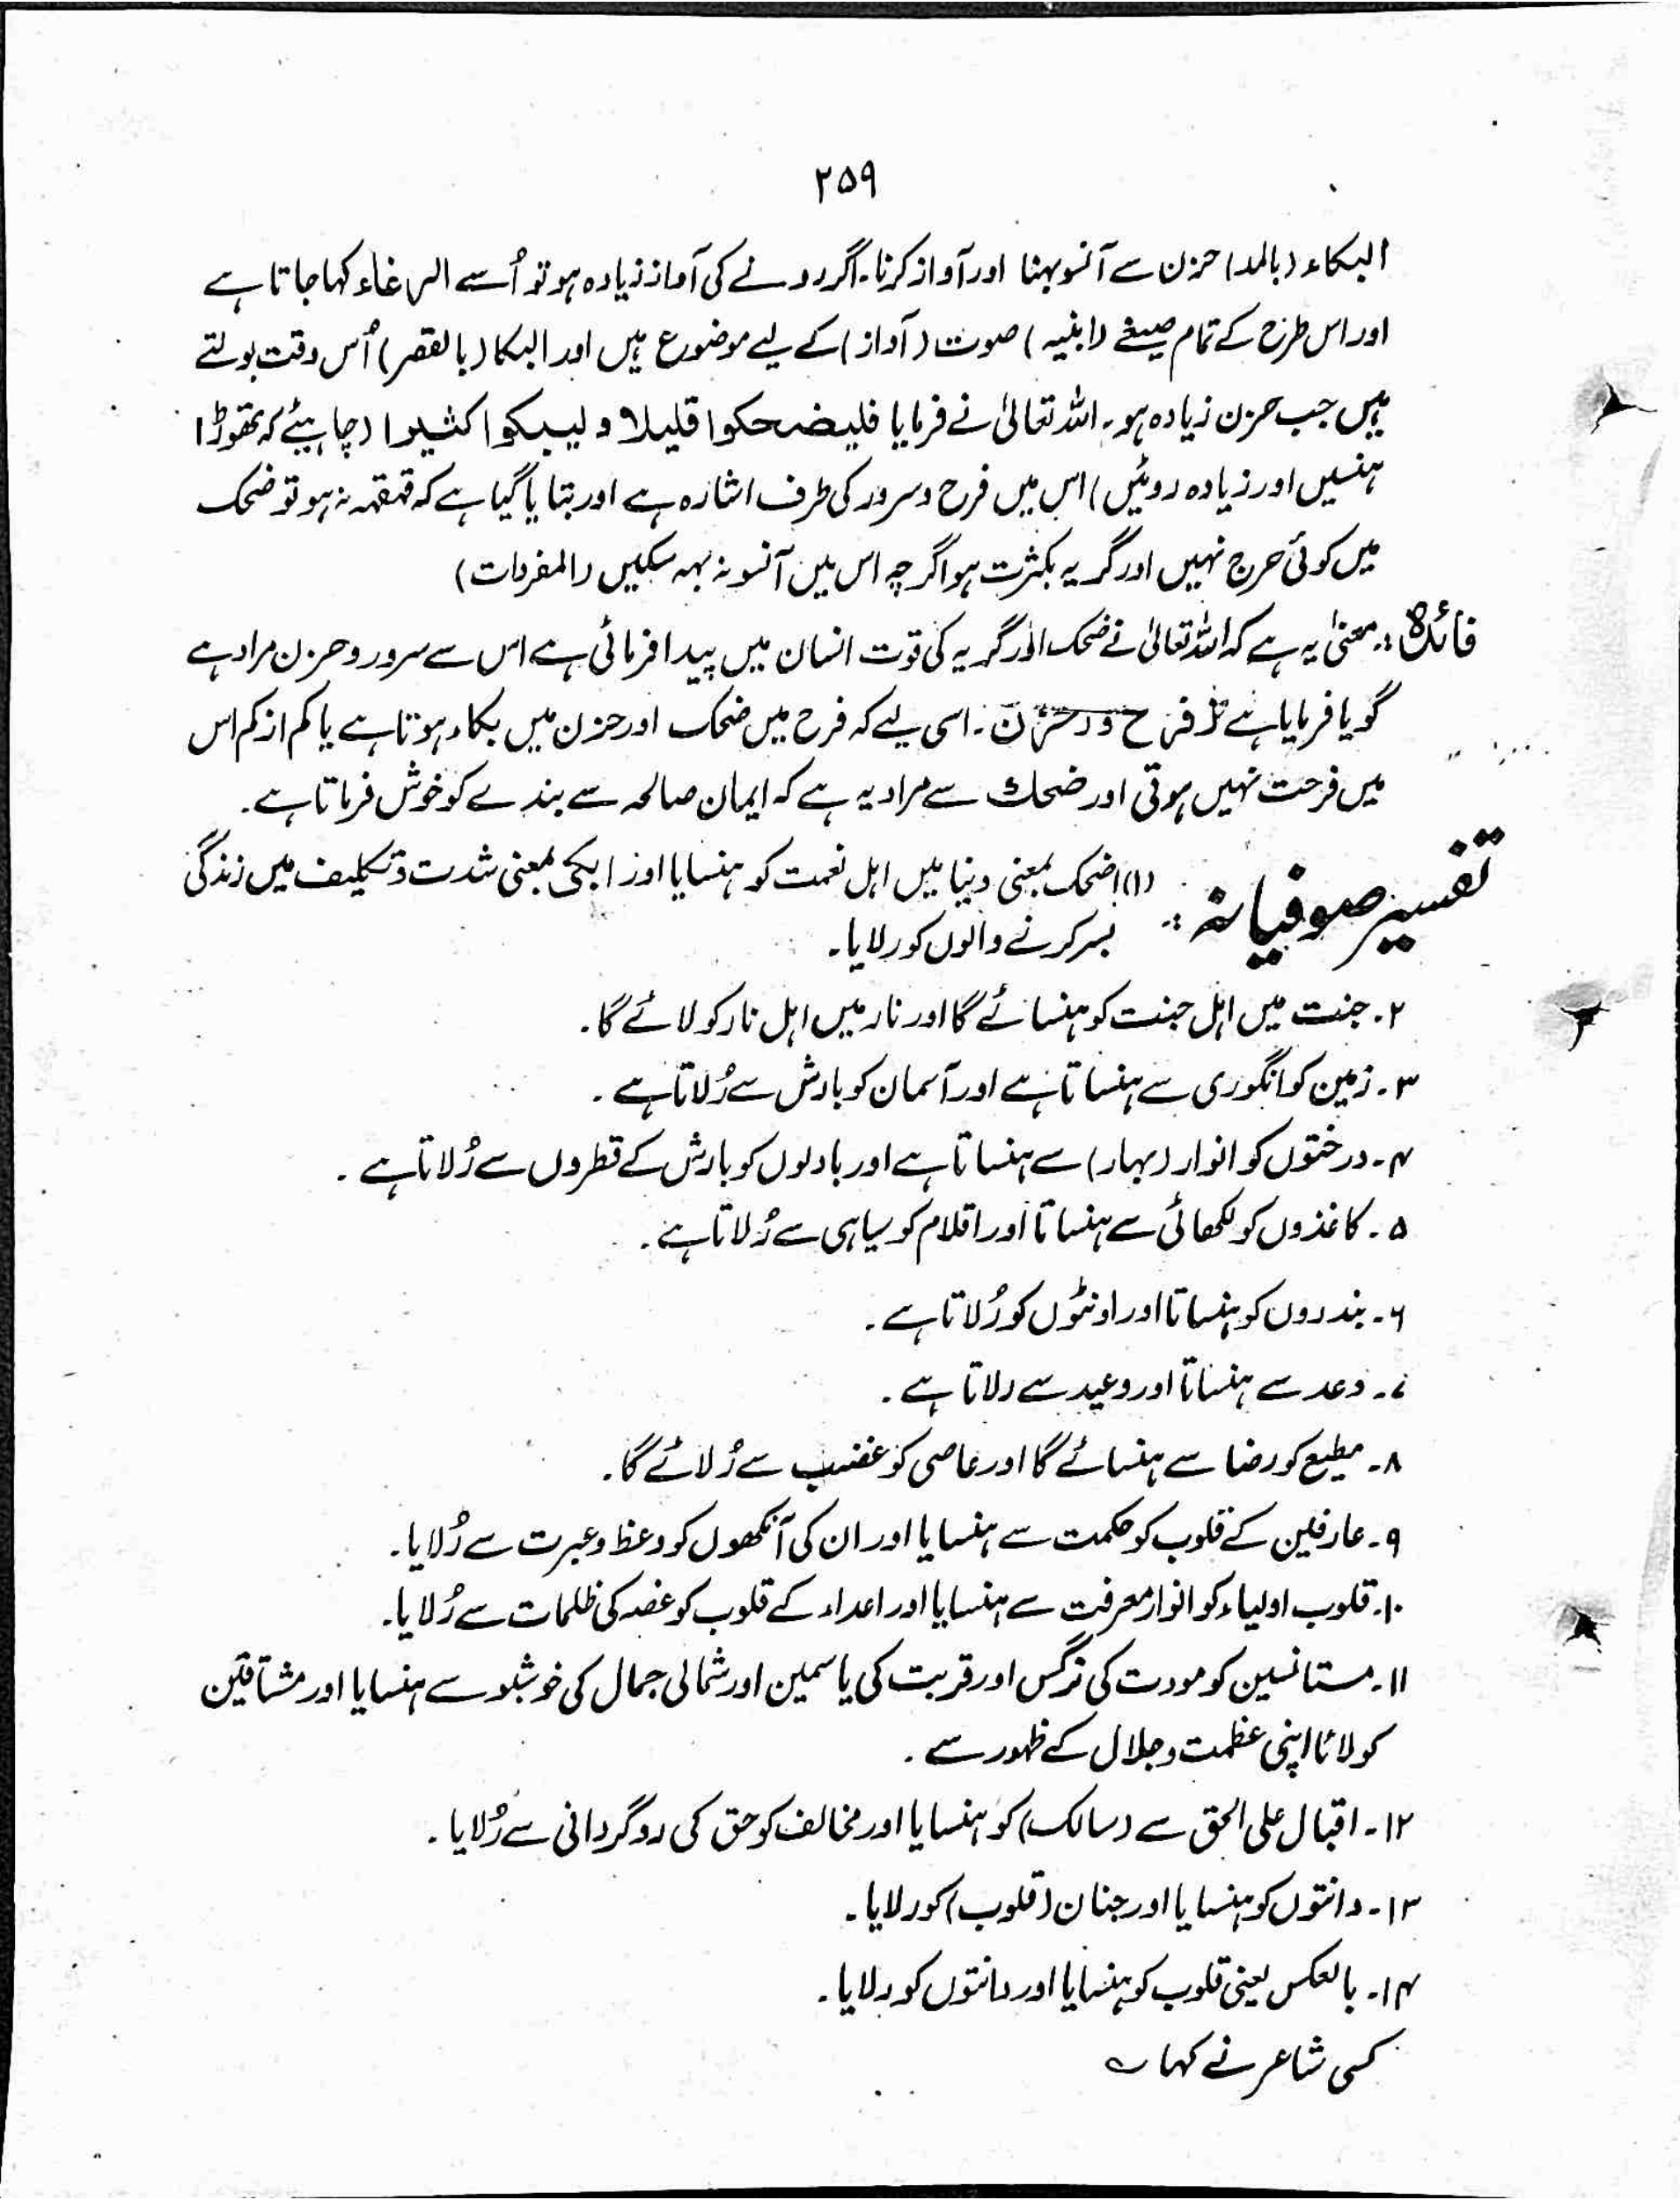 ۲۵۹
البکاء (بالمد) حزن سے آنسو بہنا اور آواز کرنا۔ اگر رونے کی آواز زیادہ ہو تو اُسے الرغاء کہا جاتا ہے
اور اس طرح کے تمام صیغے (ابنیہ) صوت (آواز) کے لیے موضوع ہیں اور البکا (بالقصر) اُس وقت بولتے
ہیں جب حزن زیادہ ہو۔ اللہ تعالیٰ نے فرمایا فلیضحکوا قلیلا و لیبکوا کثیرا (چاہیئے کہ تھوڑا
ہنسیں اور زیادہ روئیں) اس میں فرح و سرور کی طرف اشارہ ہے اور بتایا گیا ہے کہ قہقہہ نہ ہو تو ضحک
میں کوئی حرج نہیں اور گریہ بکثرت ہو اگرچہ اس میں آنسو نہ بہہ سکیں (المفردات)
فائدہ :۔ معنیٰ یہ ہے کہ اللہ تعالیٰ نے ضحک اور گریہ کی قوت انسان میں پیدا فرمائی ہے اس سے سرور و حزن مراد ہے
گویا فرمایا ہے فرح و حزن۔ اسی لیے کہ فرح میں ضحک اور حزن میں بکاء ہوتا ہے یا کم از کم اس
میں فرحت نہیں ہوتی اور ضحک سے مراد یہ ہے کہ ایمان صالحہ سے بندے کو خوش فرماتا ہے۔
تفسیر صوفیانہ :۔ (۱) اضحک بمعنی دنیا میں اہل نعمت کو ہنسایا اور ابکی بمعنی شدت و تکلیف میں زندگی
بسر کرنے والوں کو رلایا۔
۲۔ جنت میں اہل جنت کو ہنسائے گا اور نار میں اہل نار کو لائے گا۔
۳۔ زمین کو انگوری سے ہنساتا ہے اور آسمان کو بارش سے رُلاتا ہے۔
۴۔ درختوں کو انوار (بہار) سے ہنساتا ہے اور بادلوں کو بارش کے قطروں سے رُلاتا ہے۔
۵۔ کاغذوں کو لکھائی سے ہنساتا اور اقلام کو سیاہی سے رُلاتا ہے۔
۶۔ بندروں کو ہنساتا اور اونٹوں کو رُلاتا ہے۔
۷۔ وعد سے ہنساتا اور وعید سے رلاتا ہے۔
۸۔ مطیع کو رضا سے ہنسائے گا اور عاصی کو غضب سے رُلائے گا۔
۹۔ عارفین کے قلوب کو حکمت سے ہنسایا اور ان کی آنکھوں کو وعظ و عبرت سے رُلایا۔
۱۰۔ قلوب اولیاء کو انوار معرفت سے ہنسایا اور اعداء کے قلوب کو غصہ کی ظلمات سے رُلایا۔
۱۱۔ مستانسین کو مودت کی نرگس اور قربت کی یاسمین اور شمالی جمال کی خوشبو سے ہنسایا اور مشتاقین
کو لاتا اپنی عظمت و جلال کے ظہور سے۔
۱۲۔ اقبال علی الحق سے (سالک) کو ہنسایا اور مخالف کو حق کی روگردانی سے رُلایا۔
۱۳۔ دانتوں کو ہنسایا اور جنان (قلوب) کو رلایا۔
۱۴۔ بالعکس یعنی قلوب کو ہنسایا اور دانتوں کو رلایا۔
کسی شاعر نے کہا ؎